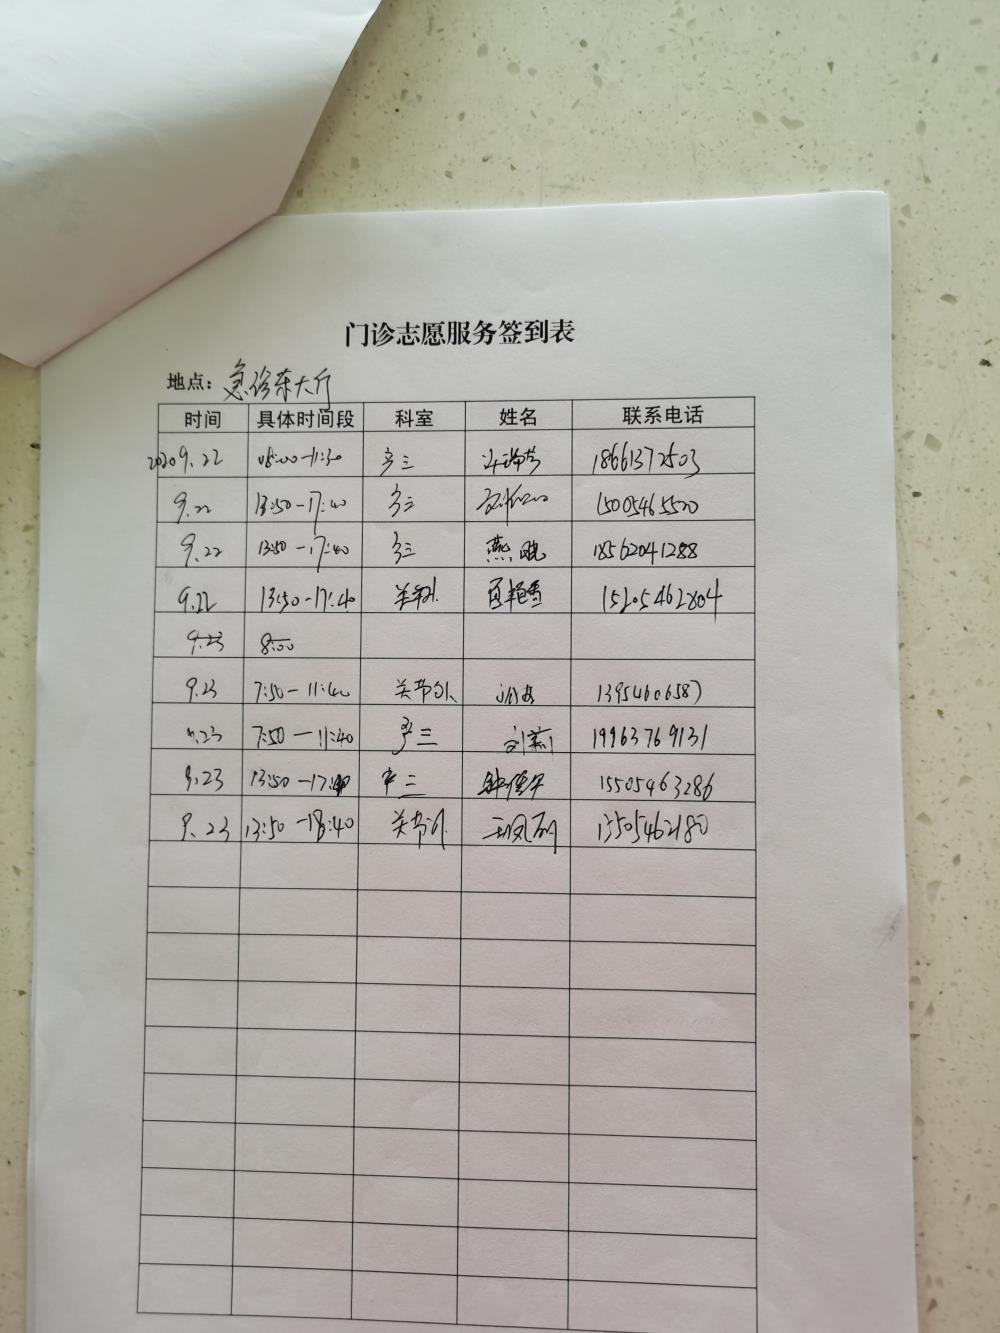 门诊志愿服务签到表
地点：急诊东大厅
时间 具体时间段 科室 姓名 联系电话
2020 9.22 08:00-11:30 产三 18661372503
9.22 13:50-17:40 产三 15005465520
9.22 13:50-17:40 产三 燕 18562041288
9.22 13:50-17:40 15205462804
9.23 8:00
9.23 7:50-11:40 关节外 13954606587
9.23 7:50-11:40 产三 刘莉 19963769131
9.23 13:50-17:40 产三 15505463286
9.23 13:50-18:40 关节外 王凤 13505462180